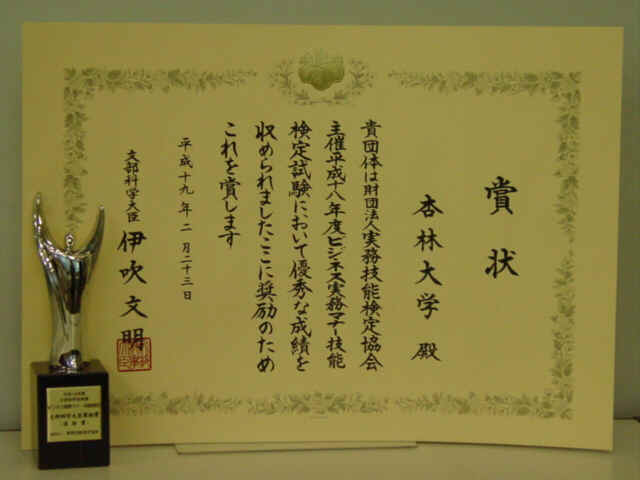 賞状
杏林大学 殿
貴団体は財団法人実務技能検定協会
主催平成十八年度ビジネス実務マナー技能
検定試験において優秀な成績を
収められましたここに奨励のため
これを賞します
平成十九年二月二十三日
文部科学大臣 伊吹文明